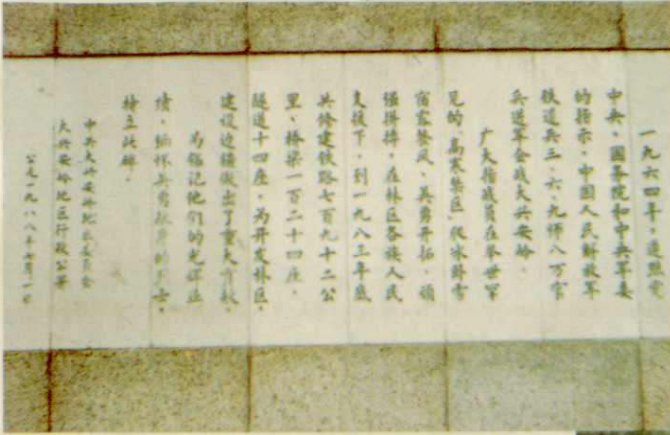 一九六四年，遵照党
中央、国务院和中央军委
的指示，中国人民解放军
铁道兵三、六、九师八万官
兵进军会战大兴安岭。
广大指战员在举世罕
见的高寒禁区，爬冰卧雪
宿露餐风，英勇开拓，顽
强拼搏，在林区各族人民
支援下，到一九八三年底
共修建铁路七百九十二公
里，桥梁一百二十四座，
隧道十四座，为开发林区，
建设边疆做出了重大贡献。
为铭记他们的光辉业
绩，缅怀英勇献身的烈士，
特立此碑。
中共大兴安岭地区委员会
大兴安岭地区行政公署
公元一九八八年七月一日